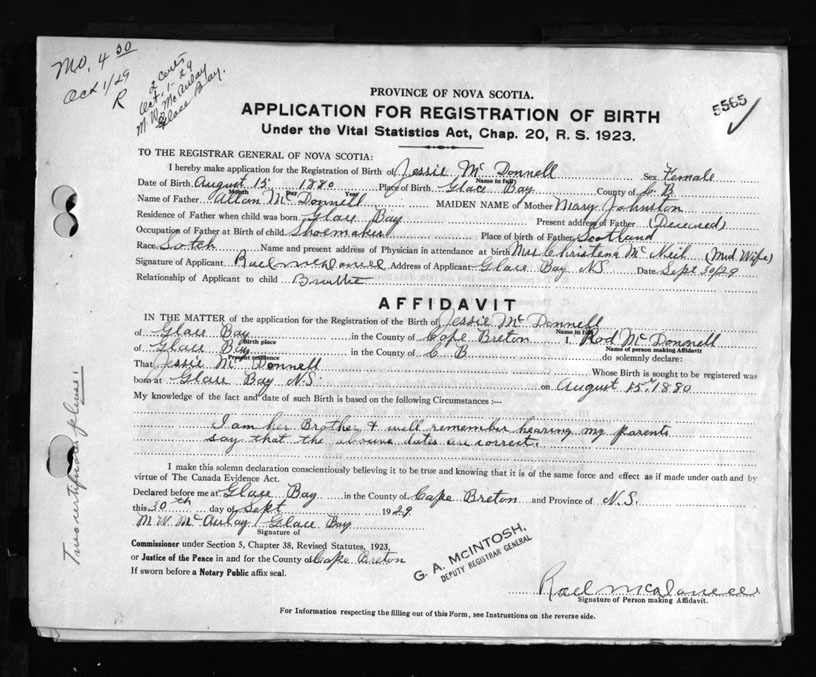 M.O. 4 30
Oct 1/29
R
2 Certs
Oct. 1 - 29
M W McAulay
Glace Bay.
PROVINCE OF NOVA SCOTIA.
5565
APPLICATION FOR REGISTRATION OF BIRTH
Under the Vital Statistics Act, Chap. 20, R. S. 1923.
TO THE REGISTRAR GENERAL OF NOVA SCOTIA:
I hereby make application for the Registration of Birth of Jessie Mc Donnell Sex Female
Name in full
Date of Birth August 15 1880 Place of Birth Glace Bay County of C. B
Month Day Year
Name of Father Allan Mc Donnell MAIDEN NAME of Mother Mary Johnston
Residence of Father when child was born Glace Bay Present address of Father (Deceased)
Occupation of Father at Birth of child Shoemaker Place of birth of Father Scotland
Race Sotch Name and present address of Physician in attendance at birth Mrs Christena Mc Neil (Mid Wife)
Signature of Applicant Address of Applicant Glace Bay N.S. Date Sept 30/29
Relationship of Applicant to child
AFFIDAVIT
IN THE MATTER of the application for the Registration of the Birth of Jessie Mc Donnell
Name in full
of Glace Bay in the County of Cape Breton I, Rod Mc Donnell
Birth place Name of person making Affidavit
of Glace Bay in the County of C B do solemnly declare:
Present residence
That Jessie Mc Donnell Whose Birth is sought to be registered was
born at Glace Bay N.S. on August 15th 1880
My knowledge of the fact and date of such Birth is based on the following Circumstances:—
I am her Brother & well remember hearing my parents
say that the above dates are correct.
I make this solemn declaration conscientiously believing it to be true and knowing that it is of the same force and effect as if made under oath and by
virtue of The Canada Evidence Act.
Declared before me at Glace Bay in the County of Cape Breton and Province of N.S.
this 30th day of Sept 1929
M. W. McAulay Glace Bay
Signature of
Commissioner under Section 5, Chapter 38, Revised Statutes, 1923,
or Justice of the Peace in and for the County of Cape Breton
If sworn before a Notary Public affix seal.
G. A. McINTOSH,
DEPUTY REGISTRAR GENERAL
Signature of Person making Affidavit.
For Information respecting the filling out of this Form, see Instructions on the reverse side.
Two certificates please: